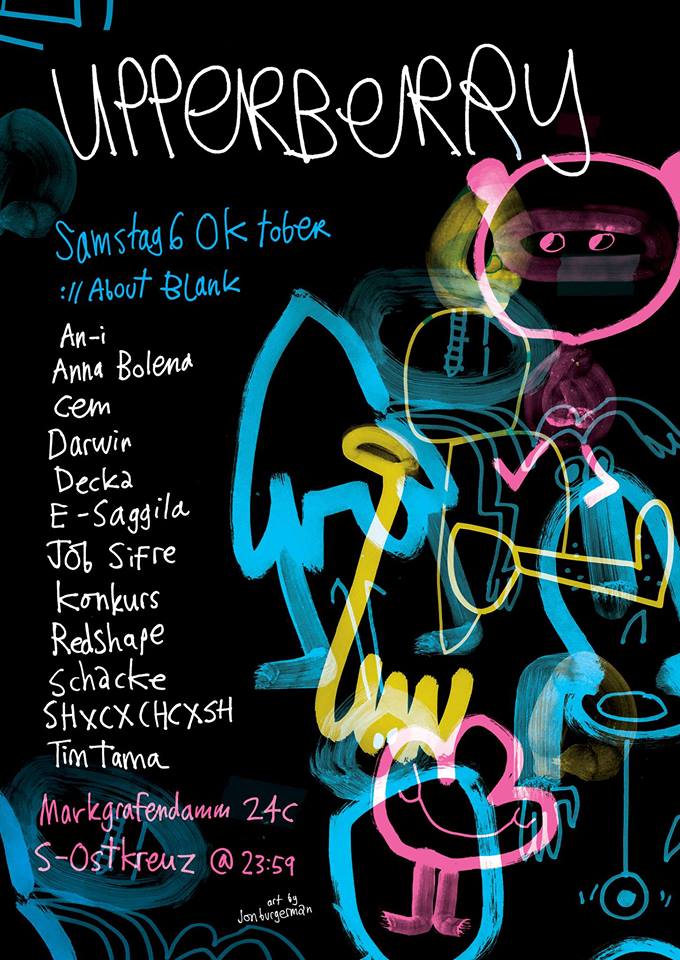 UPPERBERRY
Samstag 6 Oktober
://About Blank
An-i
Anna Bolena
Cem
Darwin
Decka
E-Saggila
Job Sifre
Konkurs
Redshape
Schacke
SHXCXCHCXSH
Tim Tama
Markgrafendamm 24c
S-Ostkreuz @ 23:59
art by
Jonburgerman